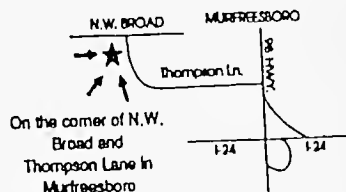 N.W. BROAD
MURFREESBORO
Thompson Ln.
96 HWY.
I-24
I-24
On the corner of N.W.
Broad and
Thompson Lane in
Murfreesboro